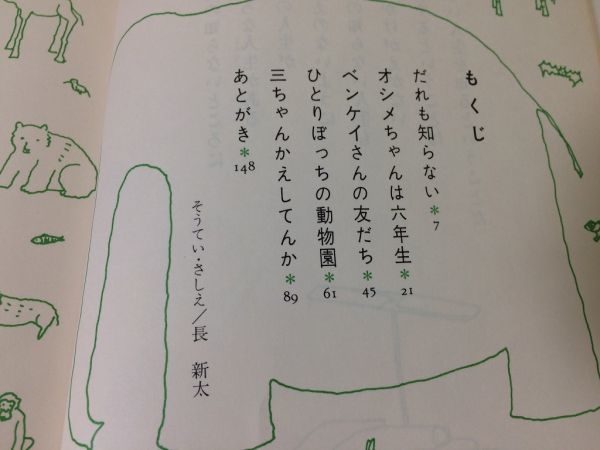 もくじ
だれも知らない*7
オシメちゃんは六年生*21
ベンケイさんの友だち*45
ひとりぼっちの動物園*61
三ちゃんかえしてんか*89
あとがき*148
そうてい・さしえ/長 新太